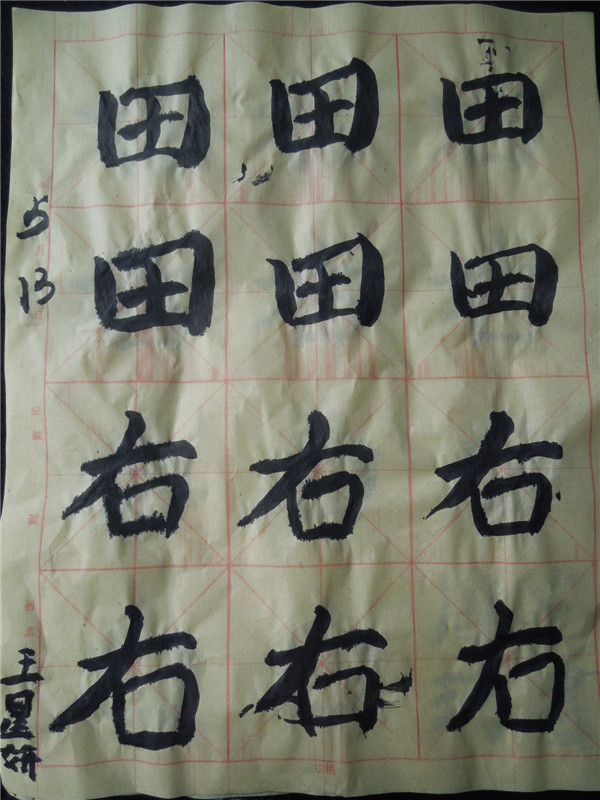 田田田
田田田
右右右
右右右
5
13
王星妍